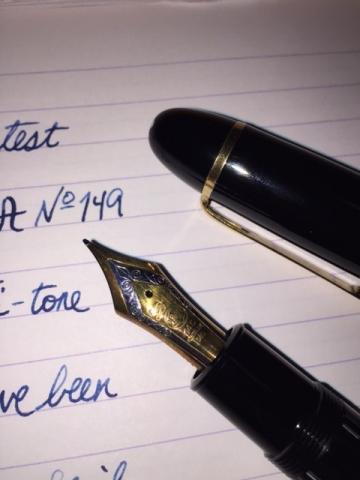 test
A Nº149
i-tone
ve been